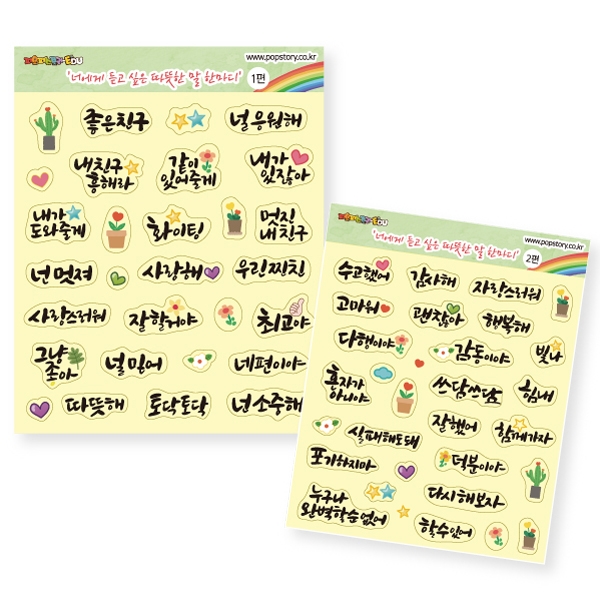 www.popstory.co.kr
'너에게 듣고 싶은 따뜻한 말 한마디'
1편
좋은친구
널 응원해
내친구
흥해라
같이
있어줄게
내가
있잖아
내가
도와줄게
화이팅
멋진
내친구
넌 멋져
사랑해
우린찌친
사랑스러워
잘할거야
최고야
그냥
좋아
널 믿어
네편이야
따뜻해
토닥토닥
넌소중해
www.popstory.co.kr
'너에게 듣고 싶은 따뜻한 말 한마디'
2편
수고했어
감사해
자랑스러워
고마워
괜찮아
행복해
다행이야
감동이야
빛나
혼자가
아니야
쓰담쓰담
힘내
잘했어
함께가자
실패해도돼
포기하지마
덕분이야
다시해보자
누구나
완벽할순없어
할수있어